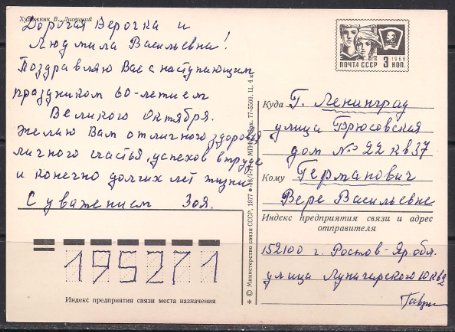 Художник
Дорогая Верочка и
Людмила Васильевна!
Поздравляю Вас с наступающим
праздником 60-летием
Великого Октября.
Желаю Вам отличного здоровья
личного счастья, успехов в труде
и конечно долгих лет жизни
С уважением Зоя.
195271
Индекс предприятия связи места назначения
© Министерство связи СССР, 1977
ПОЧТА СССР 3 КОП
1966
Куда Г. Ленинград
улица Брюсовская
дом № 22 кв 37
Кому Германович
Вере Васильевне
Индекс предприятия связи и адрес
отправителя
152100 г. Ростов-Яр обл.
улица